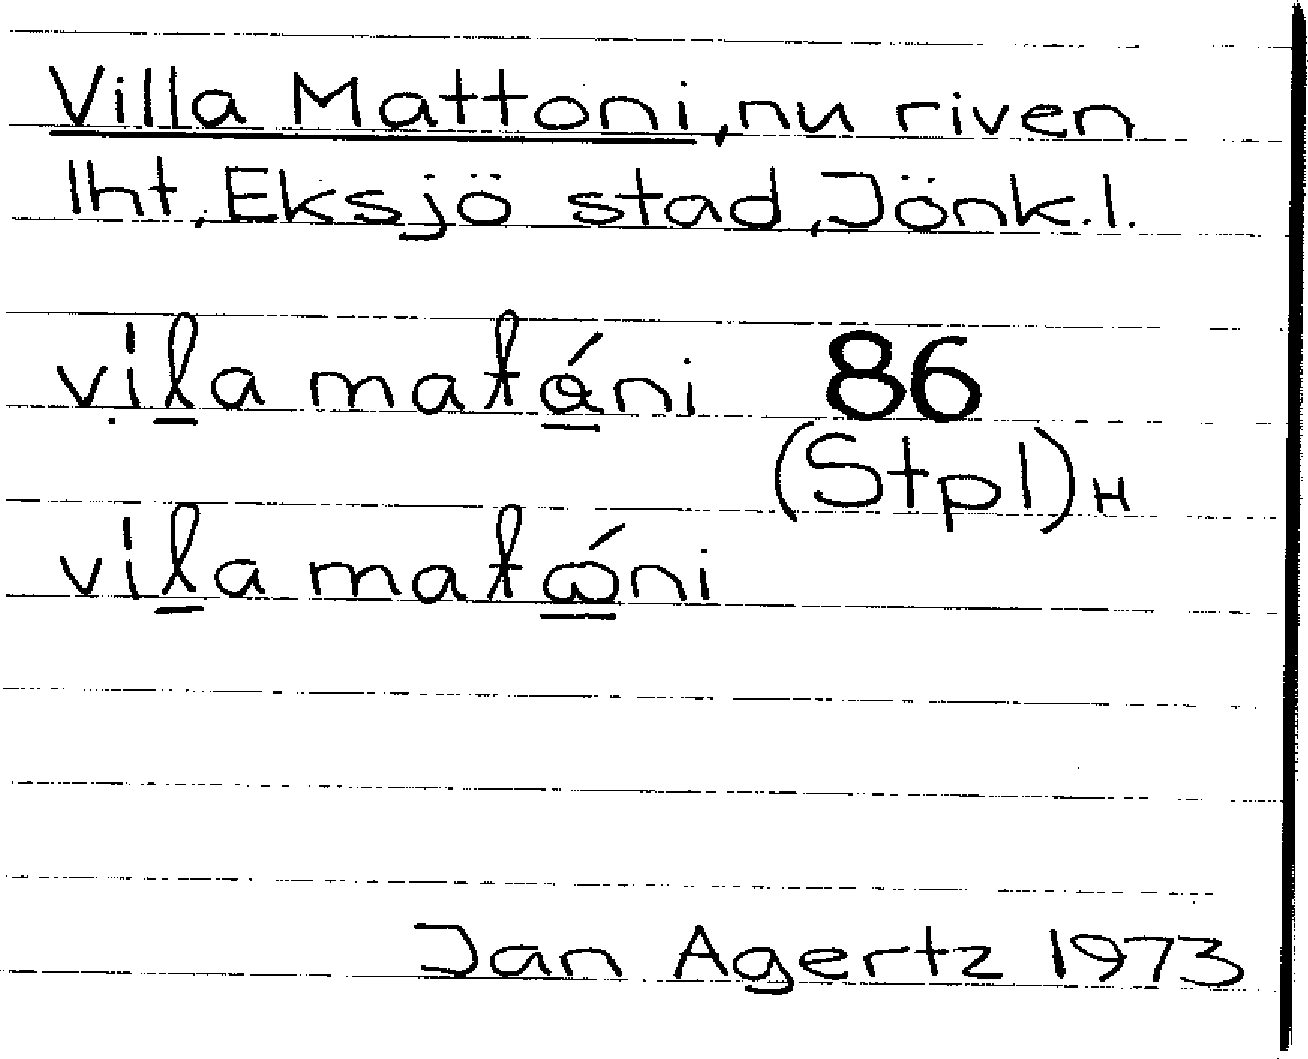 Villa Mattoni, nu riven
lht, Eksjö stad, Jönk.l.
vila matåni 86
(Stpl)H
vila matωni
Jan Agertz 1973